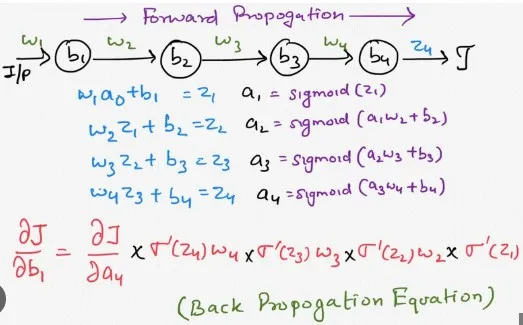 → Forward Propogation →
w₁ b₁ w₂ b₂ w₃ b₃ w₄ b₄ z₄ J
I/P
w₁a₀+b₁ = z₁ a₁ = sigmoid(z₁)
w₂z₁+b₂ = z₂ a₂ = sigmoid(a₁w₂+b₂)
w₃z₂+b₃ = z₃ a₃ = sigmoid(a₂w₃+b₃)
w₄z₃+b₄ = z₄ a₄ = sigmoid(a₃w₄+b₄)
∂J/∂b₁ = ∂J/∂a₄ × σ'(z₄) w₄ × σ'(z₃) w₃ × σ'(z₂) w₂ × σ'(z₁)
(Back Propogation Equation)